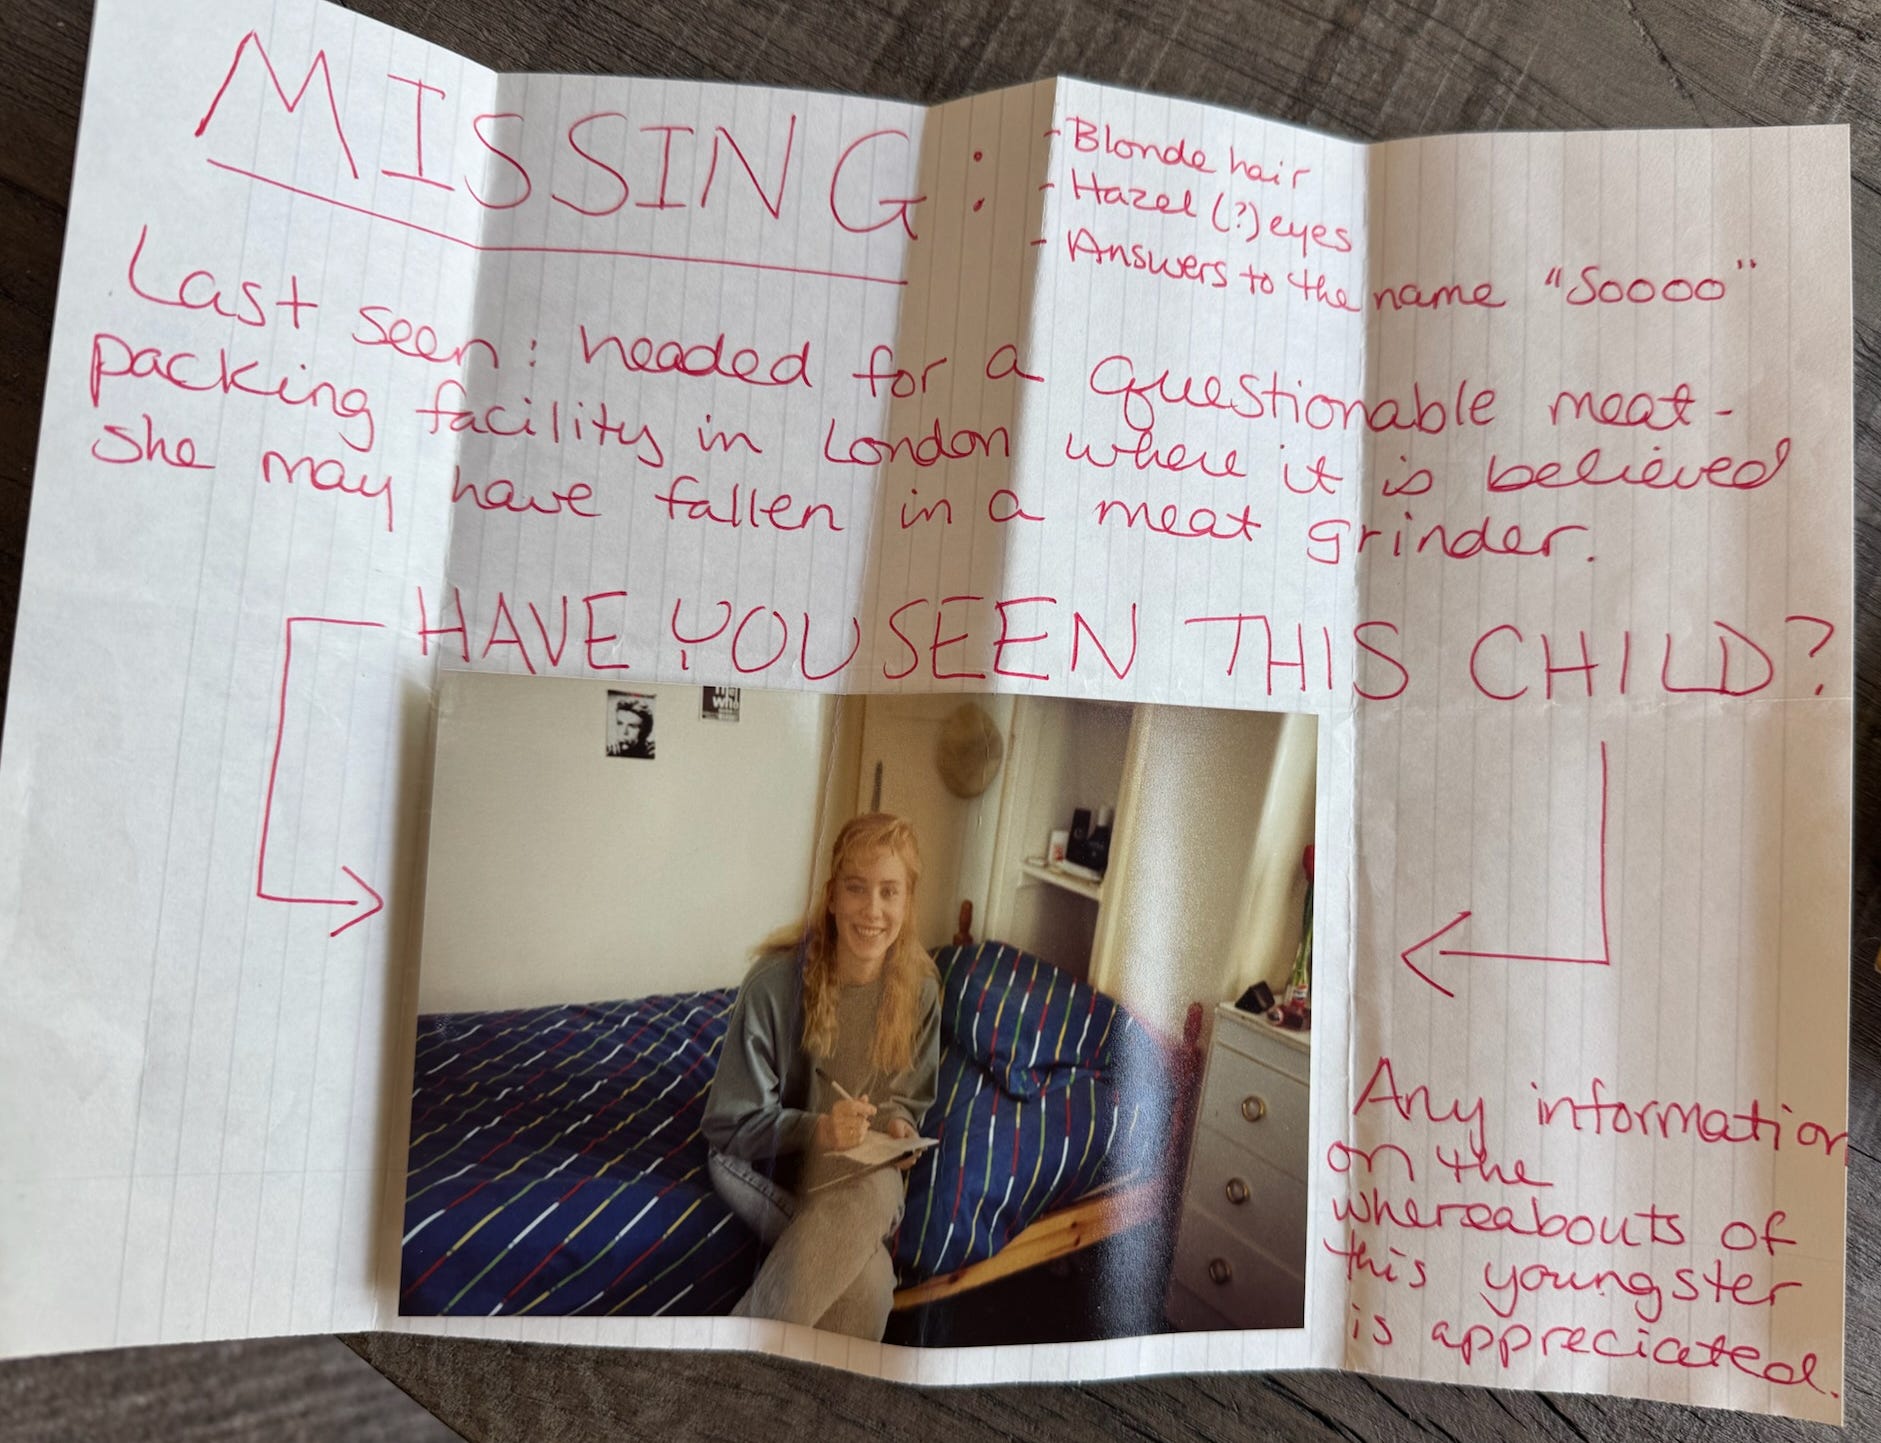 MISSING:
- Blonde hair
- Hazel (?) eyes
- Answers to the name "Soooo"
Last seen: headed for a questionable meat-
packing facility in London where it is believed
she may have fallen in a meat grinder.
HAVE YOU SEEN THIS CHILD?
Who
Any information
on the
whereabouts of
this youngster
is appreciated.